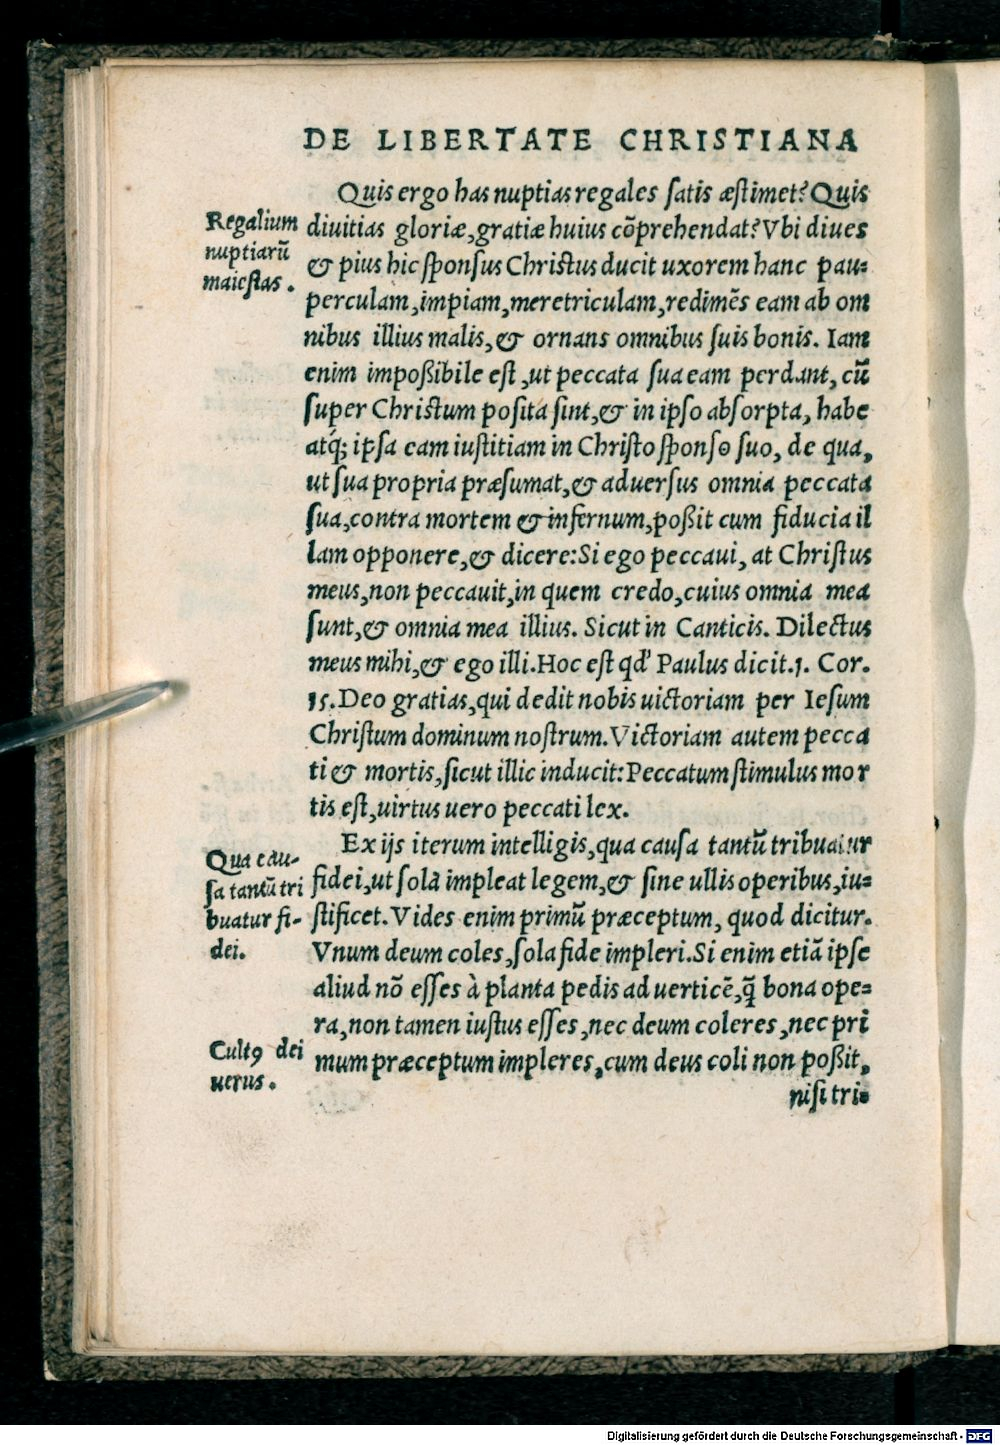 DE LIBERTATE CHRISTIANA
Quis ergo has nuptias regales ſatis æſtimet? Quis
diuitias gloriæ, gratiæ huius cõprehendat? Vbi diues
& pius hic ſponſus Chriſtus ducit uxorem hanc pau=
perculam, impiam, meretriculam, redimẽs eam ab om
nibus illius malis, & ornans omnibus ſuis bonis. Iam
enim impoßibile eſt, ut peccata sua eam perdant, cũ
ſuper Chriſtum poſita ſint, & in ipſo abſorpta, habe
atq́; ipſa eam iuſtitiam in Chriſto ſponſo ſuo, de qua,
ut ſua propria præſumat, & aduerſus omnia peccata
ſua, contra mortem & infernum, poßit cum fiducia il
lam opponere, & dicere: Si ego peccaui, at Chriſtus
meus, non peccauit, in quem credo, cuius omnia mea
ſunt, & omnia mea illius. Sicut in Canticis. Dilectus
meus mihi, & ego illi. Hoc eſt qđ Paulus dicit. 1. Cor.
15. Deo gratias, qui dedit nobis uictoriam per Ieſum
Chriſtum dominum noſtrum. Victoriam autem pecca
ti & mortis, ſicut illic inducit: Peccatum ſtimulus mor
tis eſt, uirtus uero peccati lex.
Ex ijs iterum intelligis, qua cauſa tantũ tribuatur
fidei, ut ſola impleat legem, & ſine ullis operibus, iu=
ſtificet. Vides enim primũ præceptum, quod dicitur.
Vnum deum coles, ſola fide impleri. Si enim etiã ipſe
aliud nõ eſſes à planta pedis ad uerticẽ, q̃ bona ope=
ra, non tamen iuſtus eſſes, nec deum coleres, nec pri
mum præceptum impleres, cum deus coli non poßit,
niſi tri=
Regalium
nuptiarũ
maieſtas.
Qua cau-
ſa tantũ tri
buatur fi-
dei.
Cultꝯ dei
uerus.
Digitalisierung gefördert durch die Deutsche Forschungsgemeinschaft - DFG